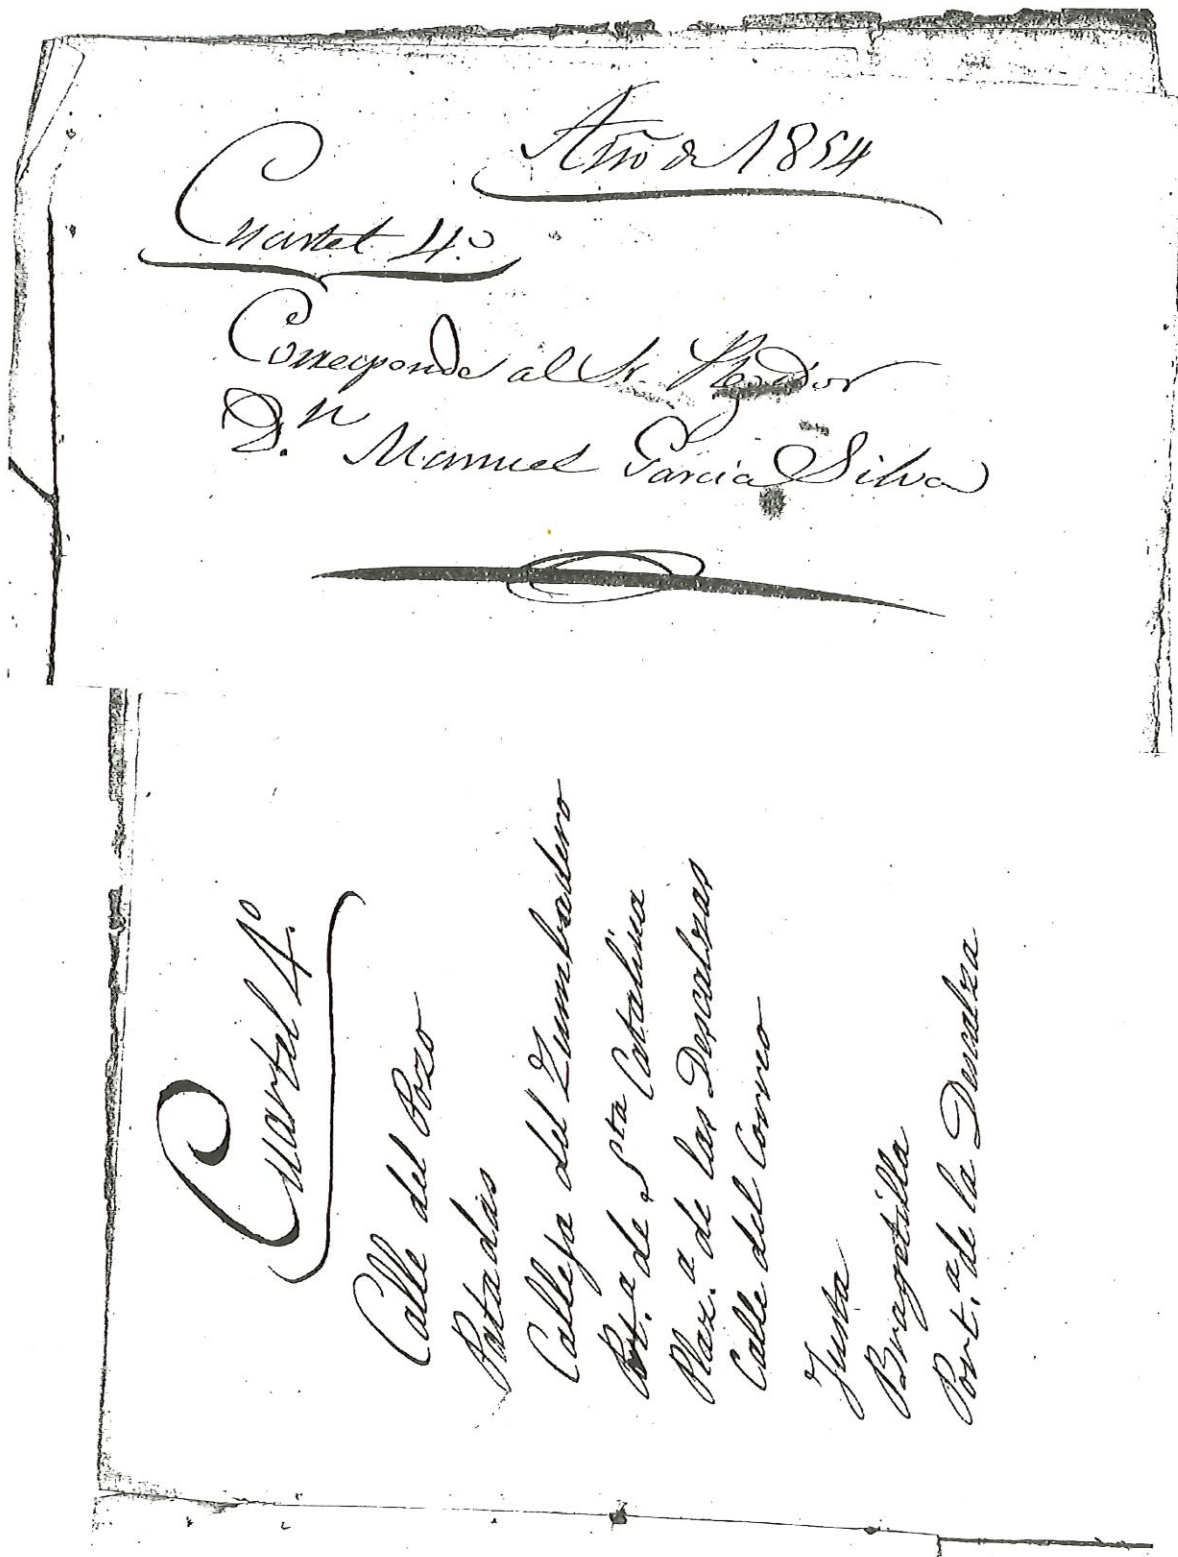 Año de 1854
Cuartel 4.º
Corresponde al Sr. Regidor
D.n Manuel Garcia Silva
Cuartel 4.º
Calle del Pozo
Patadas
Calleja del Zumbadero
de Sta Catalina
Plaz.a de las Descalzas
Calle del Correo
Justa
Bragetilla
Port.a de la Descalza